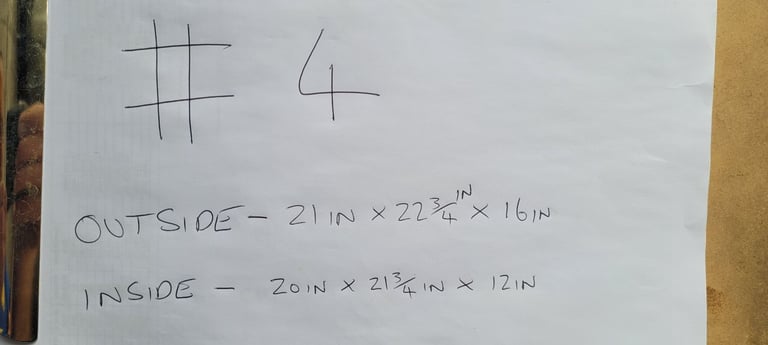 # 4
OUTSIDE - 21 IN x 22 3/4 IN x 16 IN
INSIDE - 20 IN x 21 3/4 IN x 12 IN